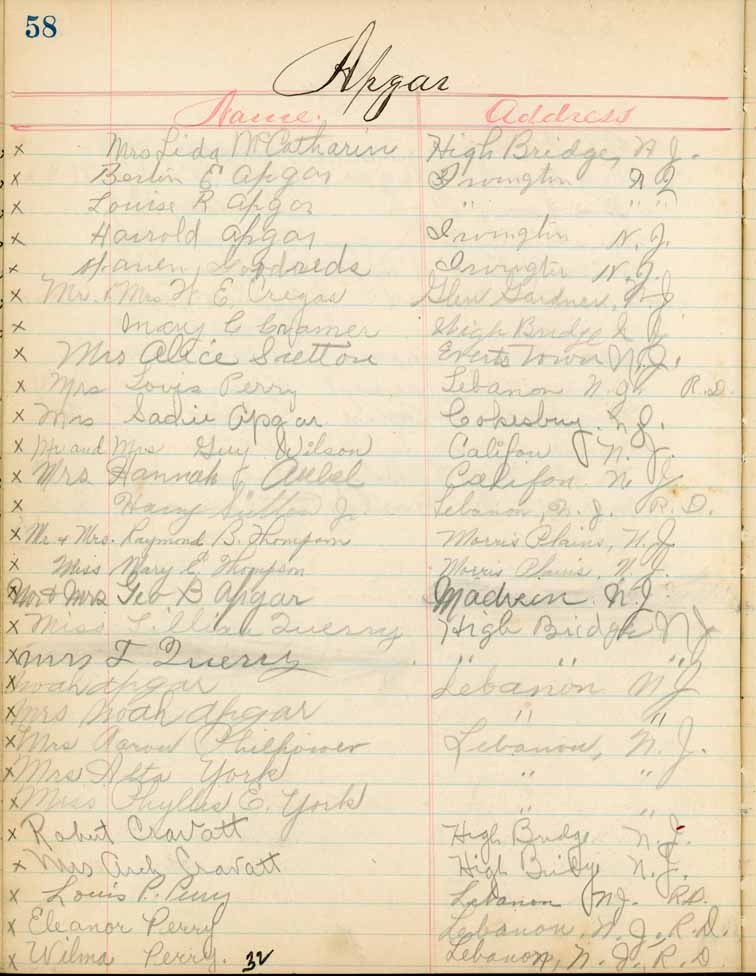 58
Apgar
Name. Address
x Mrs Lida McCatharin High Bridge, N.J.
x Berlin E Apgar Irvington N J
x Louise R Apgar " " "
x Harrold Apgar Irvington N.J.
x Irvington N.J.
x Mr. & Mrs H E Cregar Glen Gardner, N.J
x Mary C Cramer High Bridge N J
x Mrs Alice Sutton Everts Town N.J.
x Mrs Louis Perry Lebanon N.J. R.D.
x Mrs Sadie Apgar Cokesbury. N.J.
x Mr and Mrs Guy Wilson Califon N.J.
x Mrs Hannah Califon N. J.
x Harry Sutton Jr. Lebanon, N.J. R.D.
x Mr & Mrs. Raymond B. Thompson Morris Plains, N.J.
x Miss Mary E. Thompson Morris Plains, N.J.
x Mr & Mrs Geo B Apgar Madison N.J
x Miss Lillian Querry High Bridge N J
x Mrs F Querry " " "
x Noah Apgar Lebanon N J
x Mrs Noah Apgar " "
x Mrs Aaron Philhower Lebanon, N.J.
x Mrs Alta York " "
x Miss Phyllis E. York " "
x Robert Cravatt High Bridge N.J.
x Mrs Cravatt High Bridge N.J.
x Louis P. Perry Lebanon N.J. R.D.
x Eleanor Perry Lebanon, N.J., R.D.
x Wilma Perry. 32 Lebanon, N.J., R.D